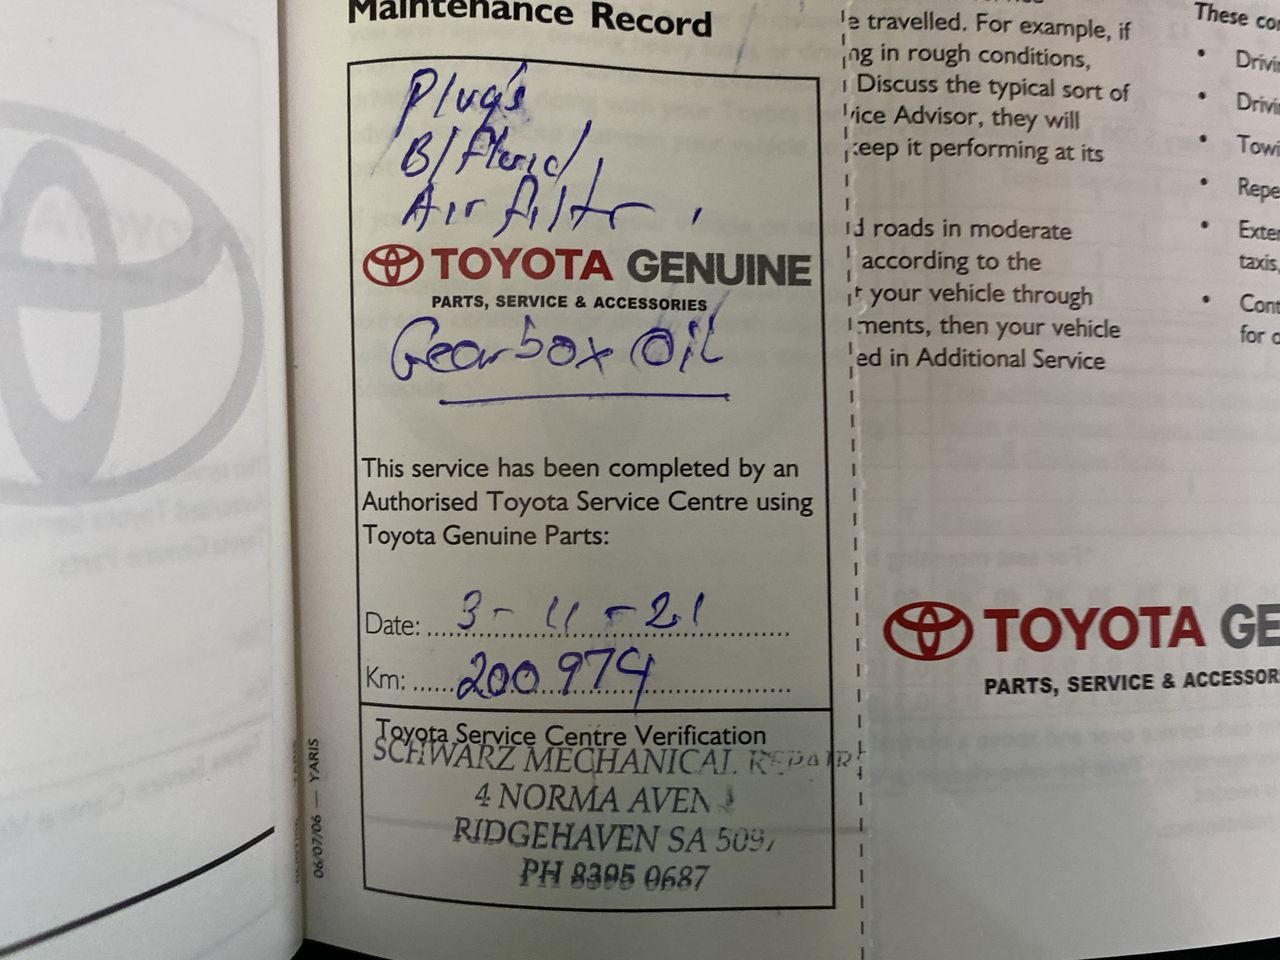 Maintenance Record
Plugs
B/fluid,
Air filtr,
TOYOTA GENUINE
PARTS, SERVICE & ACCESSORIES
Gearbox Oil
This service has been completed by an
Authorised Toyota Service Centre using
Toyota Genuine Parts:
Date: 3-11-21
Km: 200974
Toyota Service Centre Verification
SCHWARZ MECHANICAL REPAIR
4 NORMA AVEN
RIDGEHAVEN SA 5097
PH 8395 0687
06/07/06 — YARIS
e travelled. For example, if
ng in rough conditions,
Discuss the typical sort of
vice Advisor, they will
keep it performing at its
d roads in moderate
according to the
t your vehicle through
ments, then your vehicle
ed in Additional Service
These co
• Drivi
• Drivi
• Towi
• Repe
• Exter
taxis,
• Cont
for
TOYOTA GE
PARTS, SERVICE & ACCESSOR